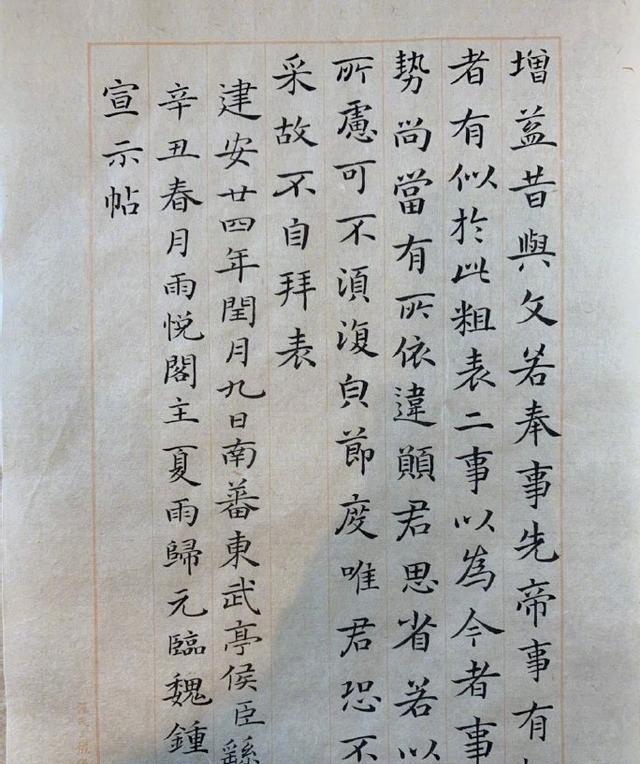 增益昔與文若奉事先帝事有
者有似於此粗表二事以為今者事
勢尚當有所依違願君思省若以
所慮可不須復皃節度唯君恐不
采故不自拜表
建安廿四年閏月九日南蕃東武亭侯臣繇
辛丑春月雨悅閣主夏雨歸元臨魏鍾
宣示帖